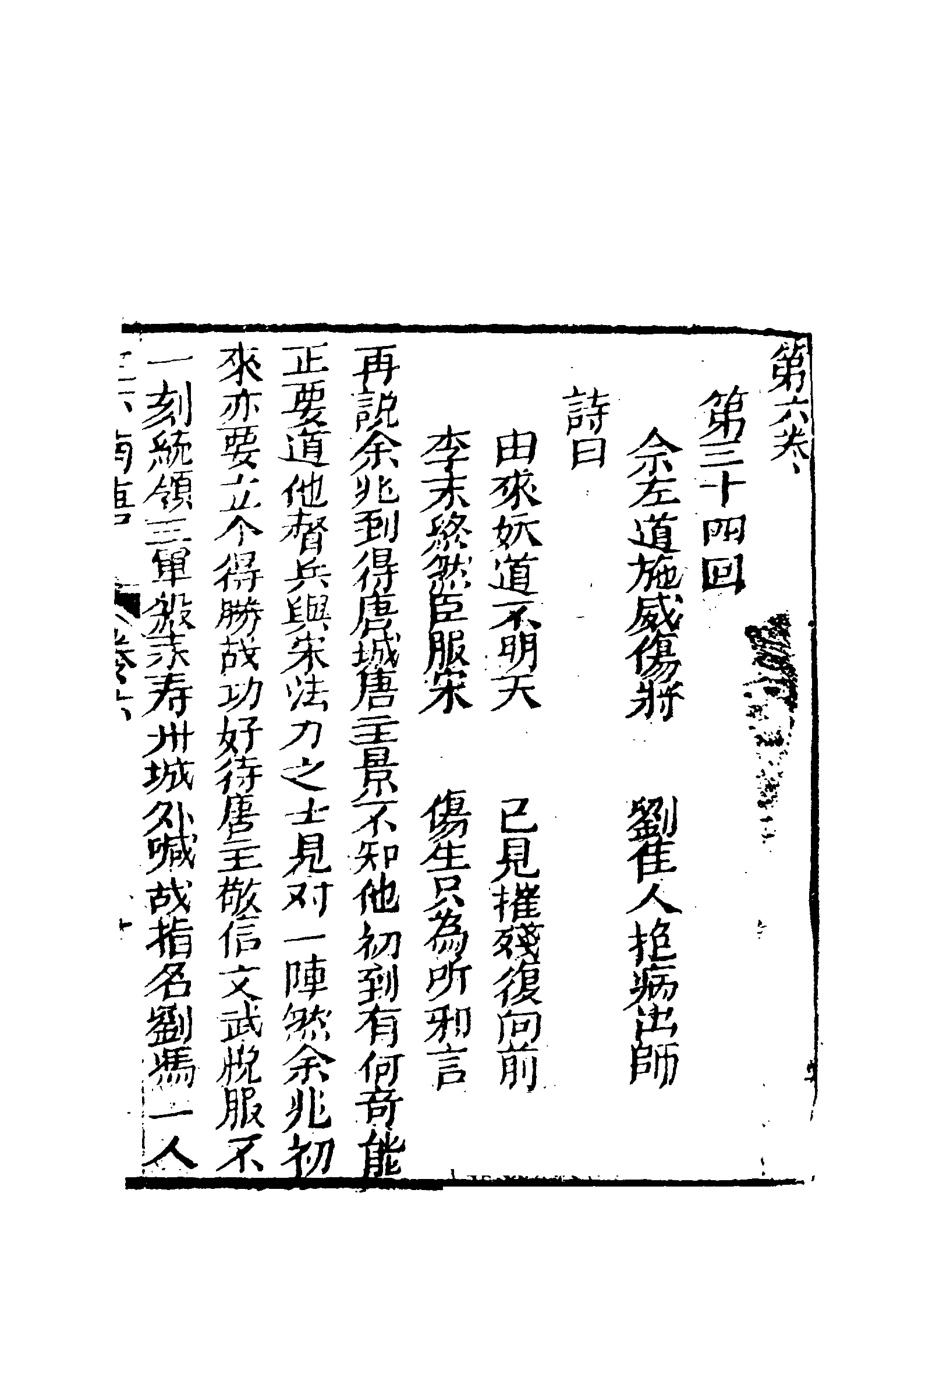 第六卷
第三十四回
余左道施威傷將　劉佳人抱病出師
詩曰
由來妖道不明天　已見摧殘復向前
李末終然臣服宋　傷生只為听邪言
再說余兆到得唐城唐主景不知他初到有何奇能
正要道他督兵與宋法力之士見对一陣然余兆初
來亦要立个得勝战功好待唐主敬信文武悅服不
一刻統領三軍殺来寿州城外喊战指名劉馮一人
下南唐　卷六